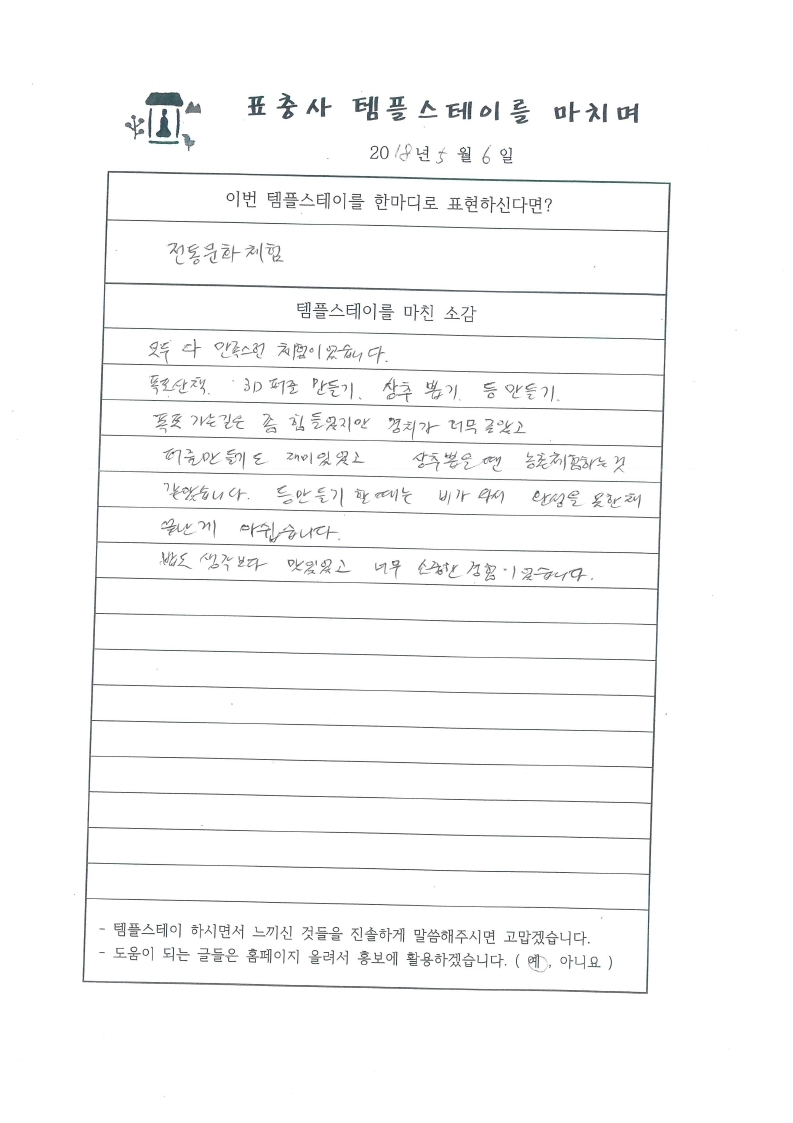 표충사 템플스테이를 마치며
2018년 5월 6일
이번 템플스테이를 한마디로 표현하신다면?
전통문화체험
템플스테이를 마친 소감
모두 다 만족스런 체험이었습니다.
폭포산책. 3D 퍼즐 만들기. 상추 뽑기. 등 만들기.
폭포 가는길은 좀 힘들었지만 경치가 너무 좋았고
퍼즐만들기도 재미있었고 상추뽑을땐 농촌체험하는것
같았습니다. 등만들기 할때는 비가 와서 완성을 못한채
끝난게 아쉽습니다.
밥도 생각보다 맛있었고 너무 소중한 경험이었습니다.
- 템플스테이 하시면서 느끼신 것들을 진솔하게 말씀해주시면 고맙겠습니다.
- 도움이 되는 글들은 홈페이지 올려서 홍보에 활용하겠습니다. ( 예 , 아니요 )